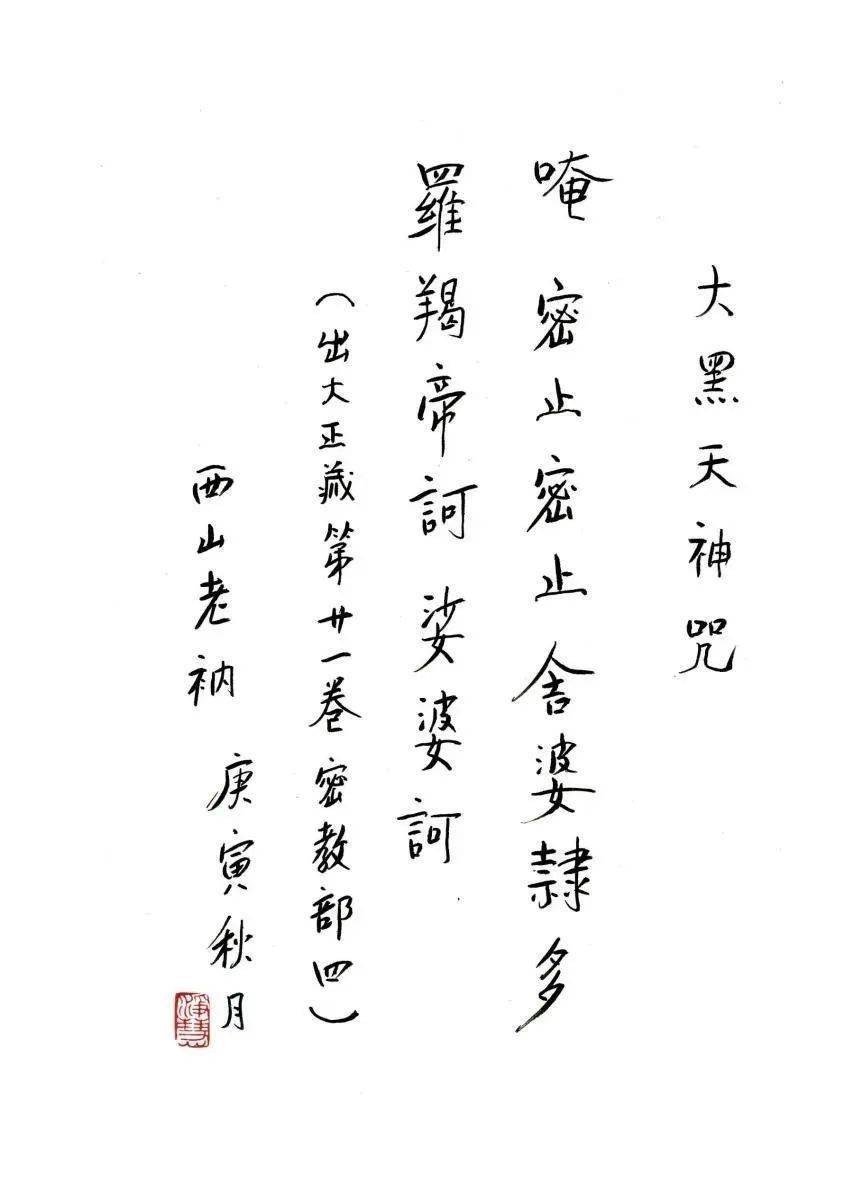 大黑天神咒
唵 密止密止 舍婆隸多
羅羯帝訶 娑婆訶
（出大正藏第廿一卷密教部四）
西山老衲
庚寅秋月